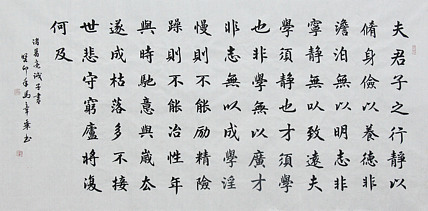 夫君子之行靜以
脩身儉以養德非
澹泊無以明志非
寧靜無以致遠夫
學須靜也才須學
也非學無以廣才
非志無以成學淫
慢則不能励精險
躁則不能冶性年
與時馳意與歲去
遂成枯落多不接
世悲守窮廬將復
何及
諸葛亮誡子書
癸卯年